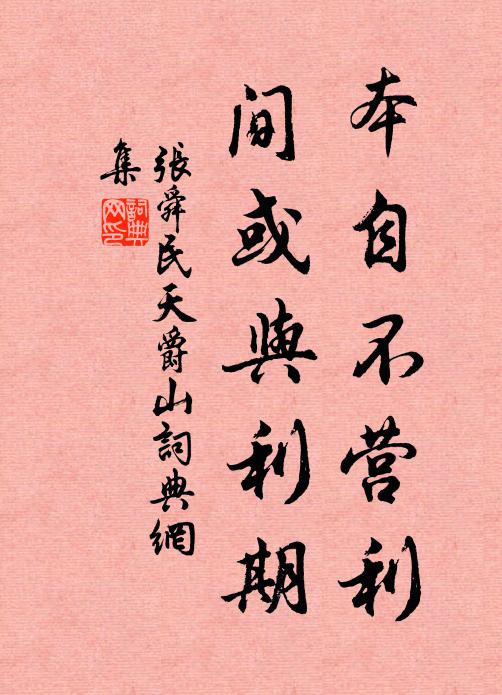 本自不营利
间或與利期
張舜民天爵山詞典網
集
詞典网印